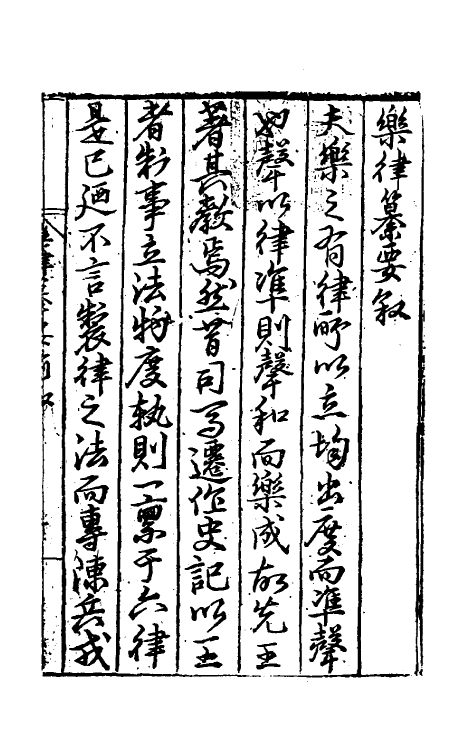 樂律纂要叙
夫樂之有律所以立均出度而準聲
也聲以律準則聲和而樂成故先王
著其教焉然昔司馬遷作史記以王
者制事立法物度軌則一稟于六律
是已廼不言製律之法而專陳兵戎